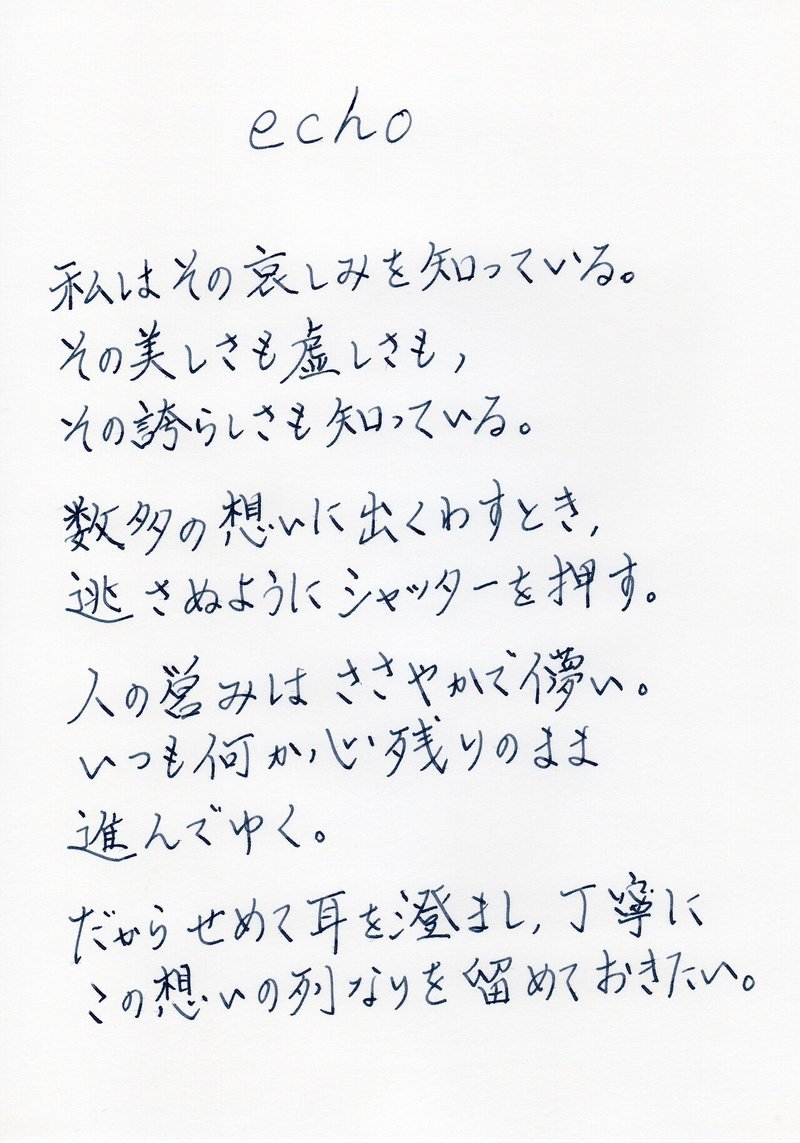 echo
私はその哀しみを知っている。
その美しさも虚しさも,
その誇らしさも知っている。
数多の想いに出くわすとき,
逃さぬようにシャッターを押す。
人の営みはささやかで儚い。
いつも何か心残りのまま
進んでゆく。
だからせめて耳を澄まし,丁寧に
この想いの列なりを留めておきたい。